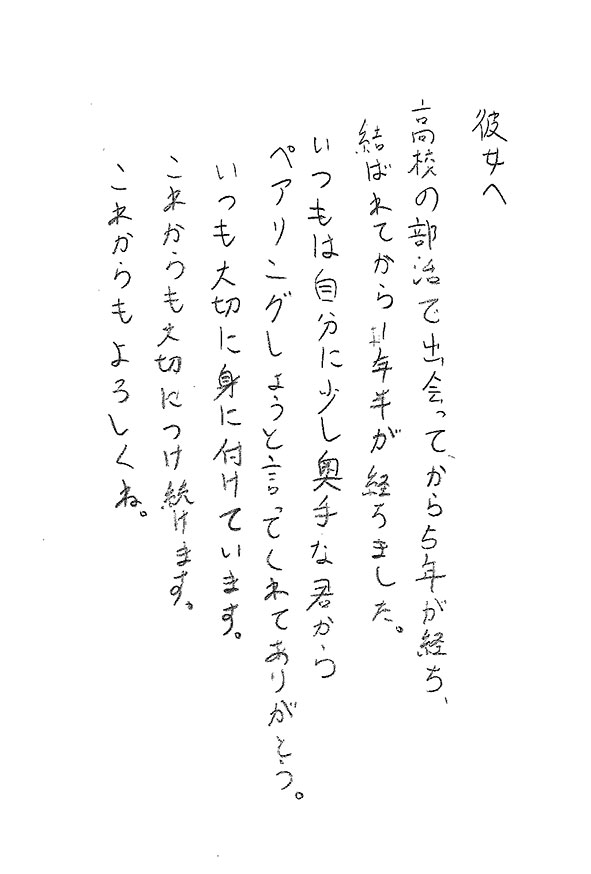 彼女へ
高校の部活で出会ってから5年が経ち、
結ばれてから1年半が経ちました。
いつもは自分に少し奥手な君から
ペアリングしようと言ってくれてありがとう。
いつも大切に身に付けています。
これからも大切につけ続けます。
これからもよろしくね。